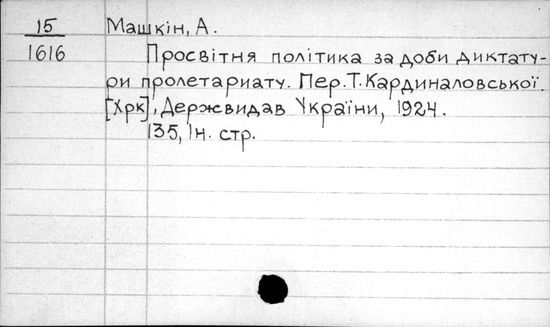 15 Машкін, А.
1616 Просвітня політика за доби диктату-
ри пролетариату. Пер. Т. Кардиналовської.
[Хрк], Держвидав України, 1924.
135, 1н. стр.